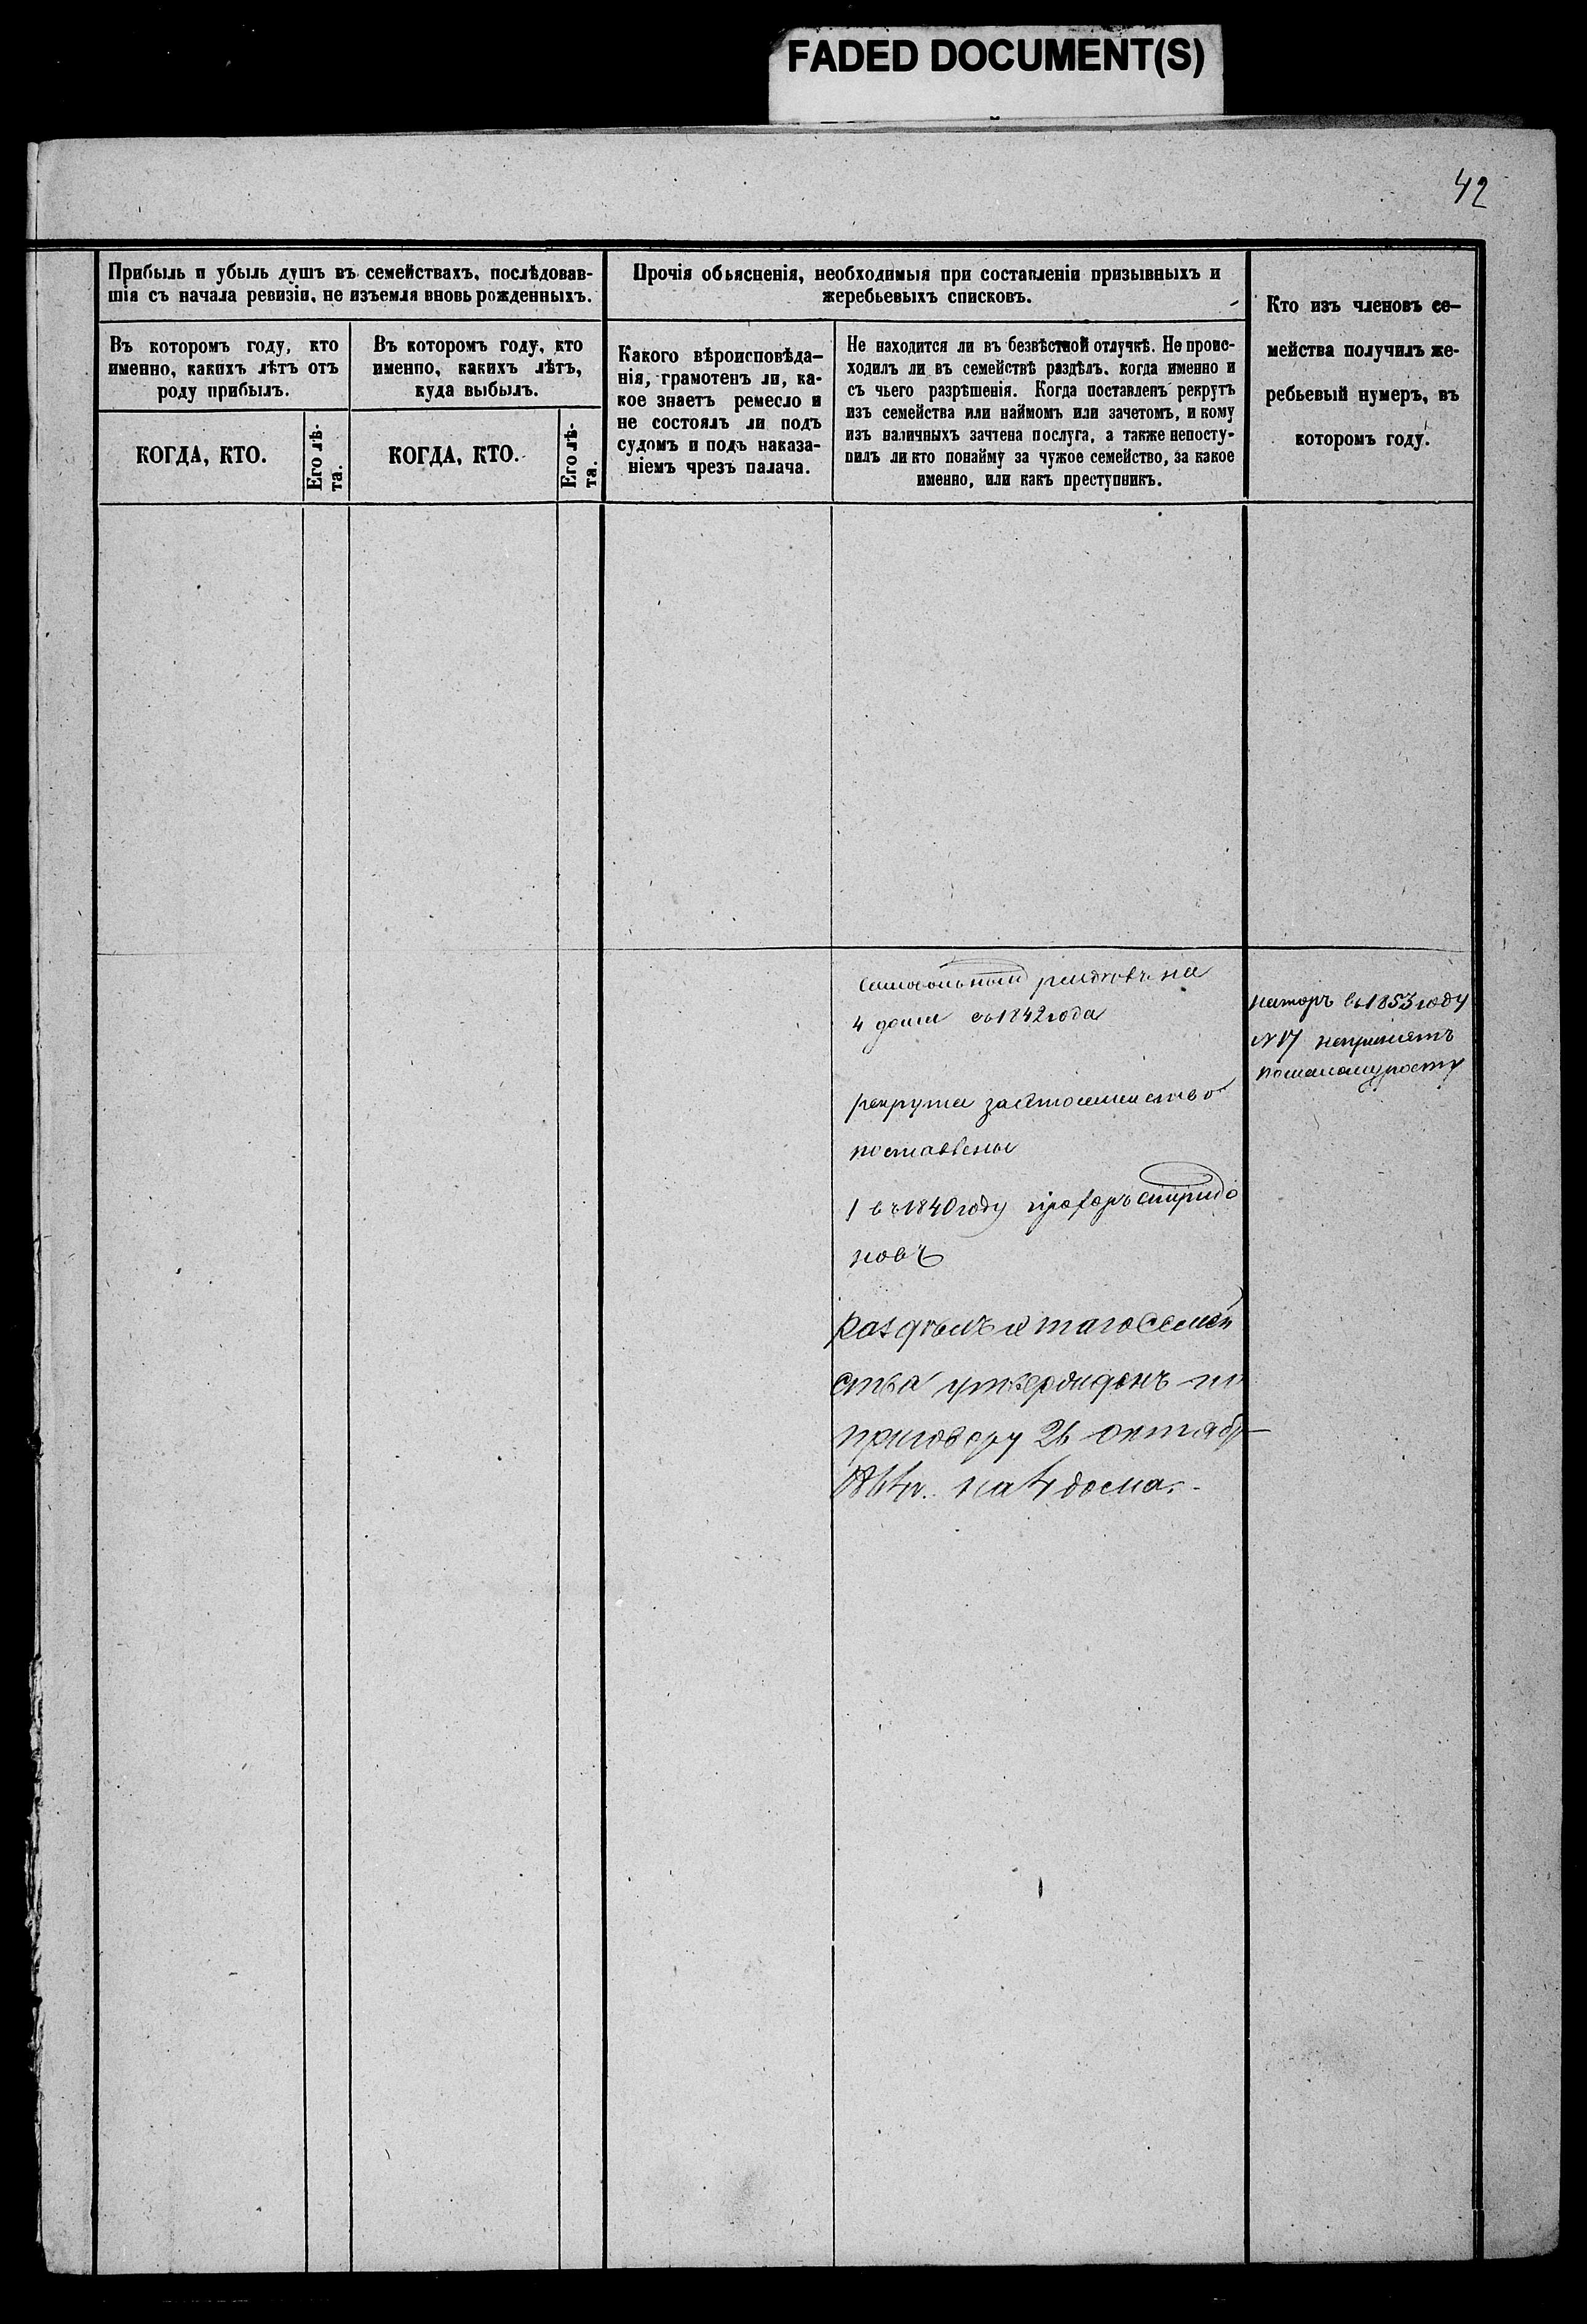 FADED DOCUMENT(S)
42
Прибыль и убыль душъ въ семействахъ, послѣдовав-
шія съ начала ревизіи, не изъемля вновь рожденныхъ.
Въ которомъ году, кто
именно, какихъ лѣтъ отъ
роду прибылъ.
КОГДА, КТО.
Его лѣ-
та.
Въ которомъ году, кто
именно, какихъ лѣтъ,
куда выбылъ.
КОГДА, КТО.
Его лѣ-
та.
Прочія объясненія, необходимыя при составленіи призывныхъ и
жеребьевыхъ списковъ.
Какого вѣроисповѣда-
нія, грамотенъ ли, ка-
кое знаетъ ремесло и
не состоялъ ли подъ
судомъ и подъ наказа-
ніемъ чрезъ палача.
Не находится ли въ безвѣстной отлучкѣ. Не проис-
ходилъ ли въ семействѣ раздѣлъ, когда именно и
съ чьего разрѣшенія. Когда поставленъ рекрутъ
изъ семейства или наймомъ или зачетомъ, и кому
изъ наличныхъ зачтена послуга, а также непосту-
пилъ ли кто понайму за чужое семейство, за какое
именно, или какъ преступникъ.
Кто изъ членовъ се-
мейства получилъ же-
ребьевый нумеръ, въ
которомъ году.
на
4 дома съ 1842 года
рекрута за
поставлены
1 въ 1840 году прохоръ спиридо
новъ
раздѣлъ етаго семей
ства утвержденъ по
приговору 26 октябр
1864 г. на 4 дома.
въ 1853 году
№ 17 непринятъ
помаломуросту